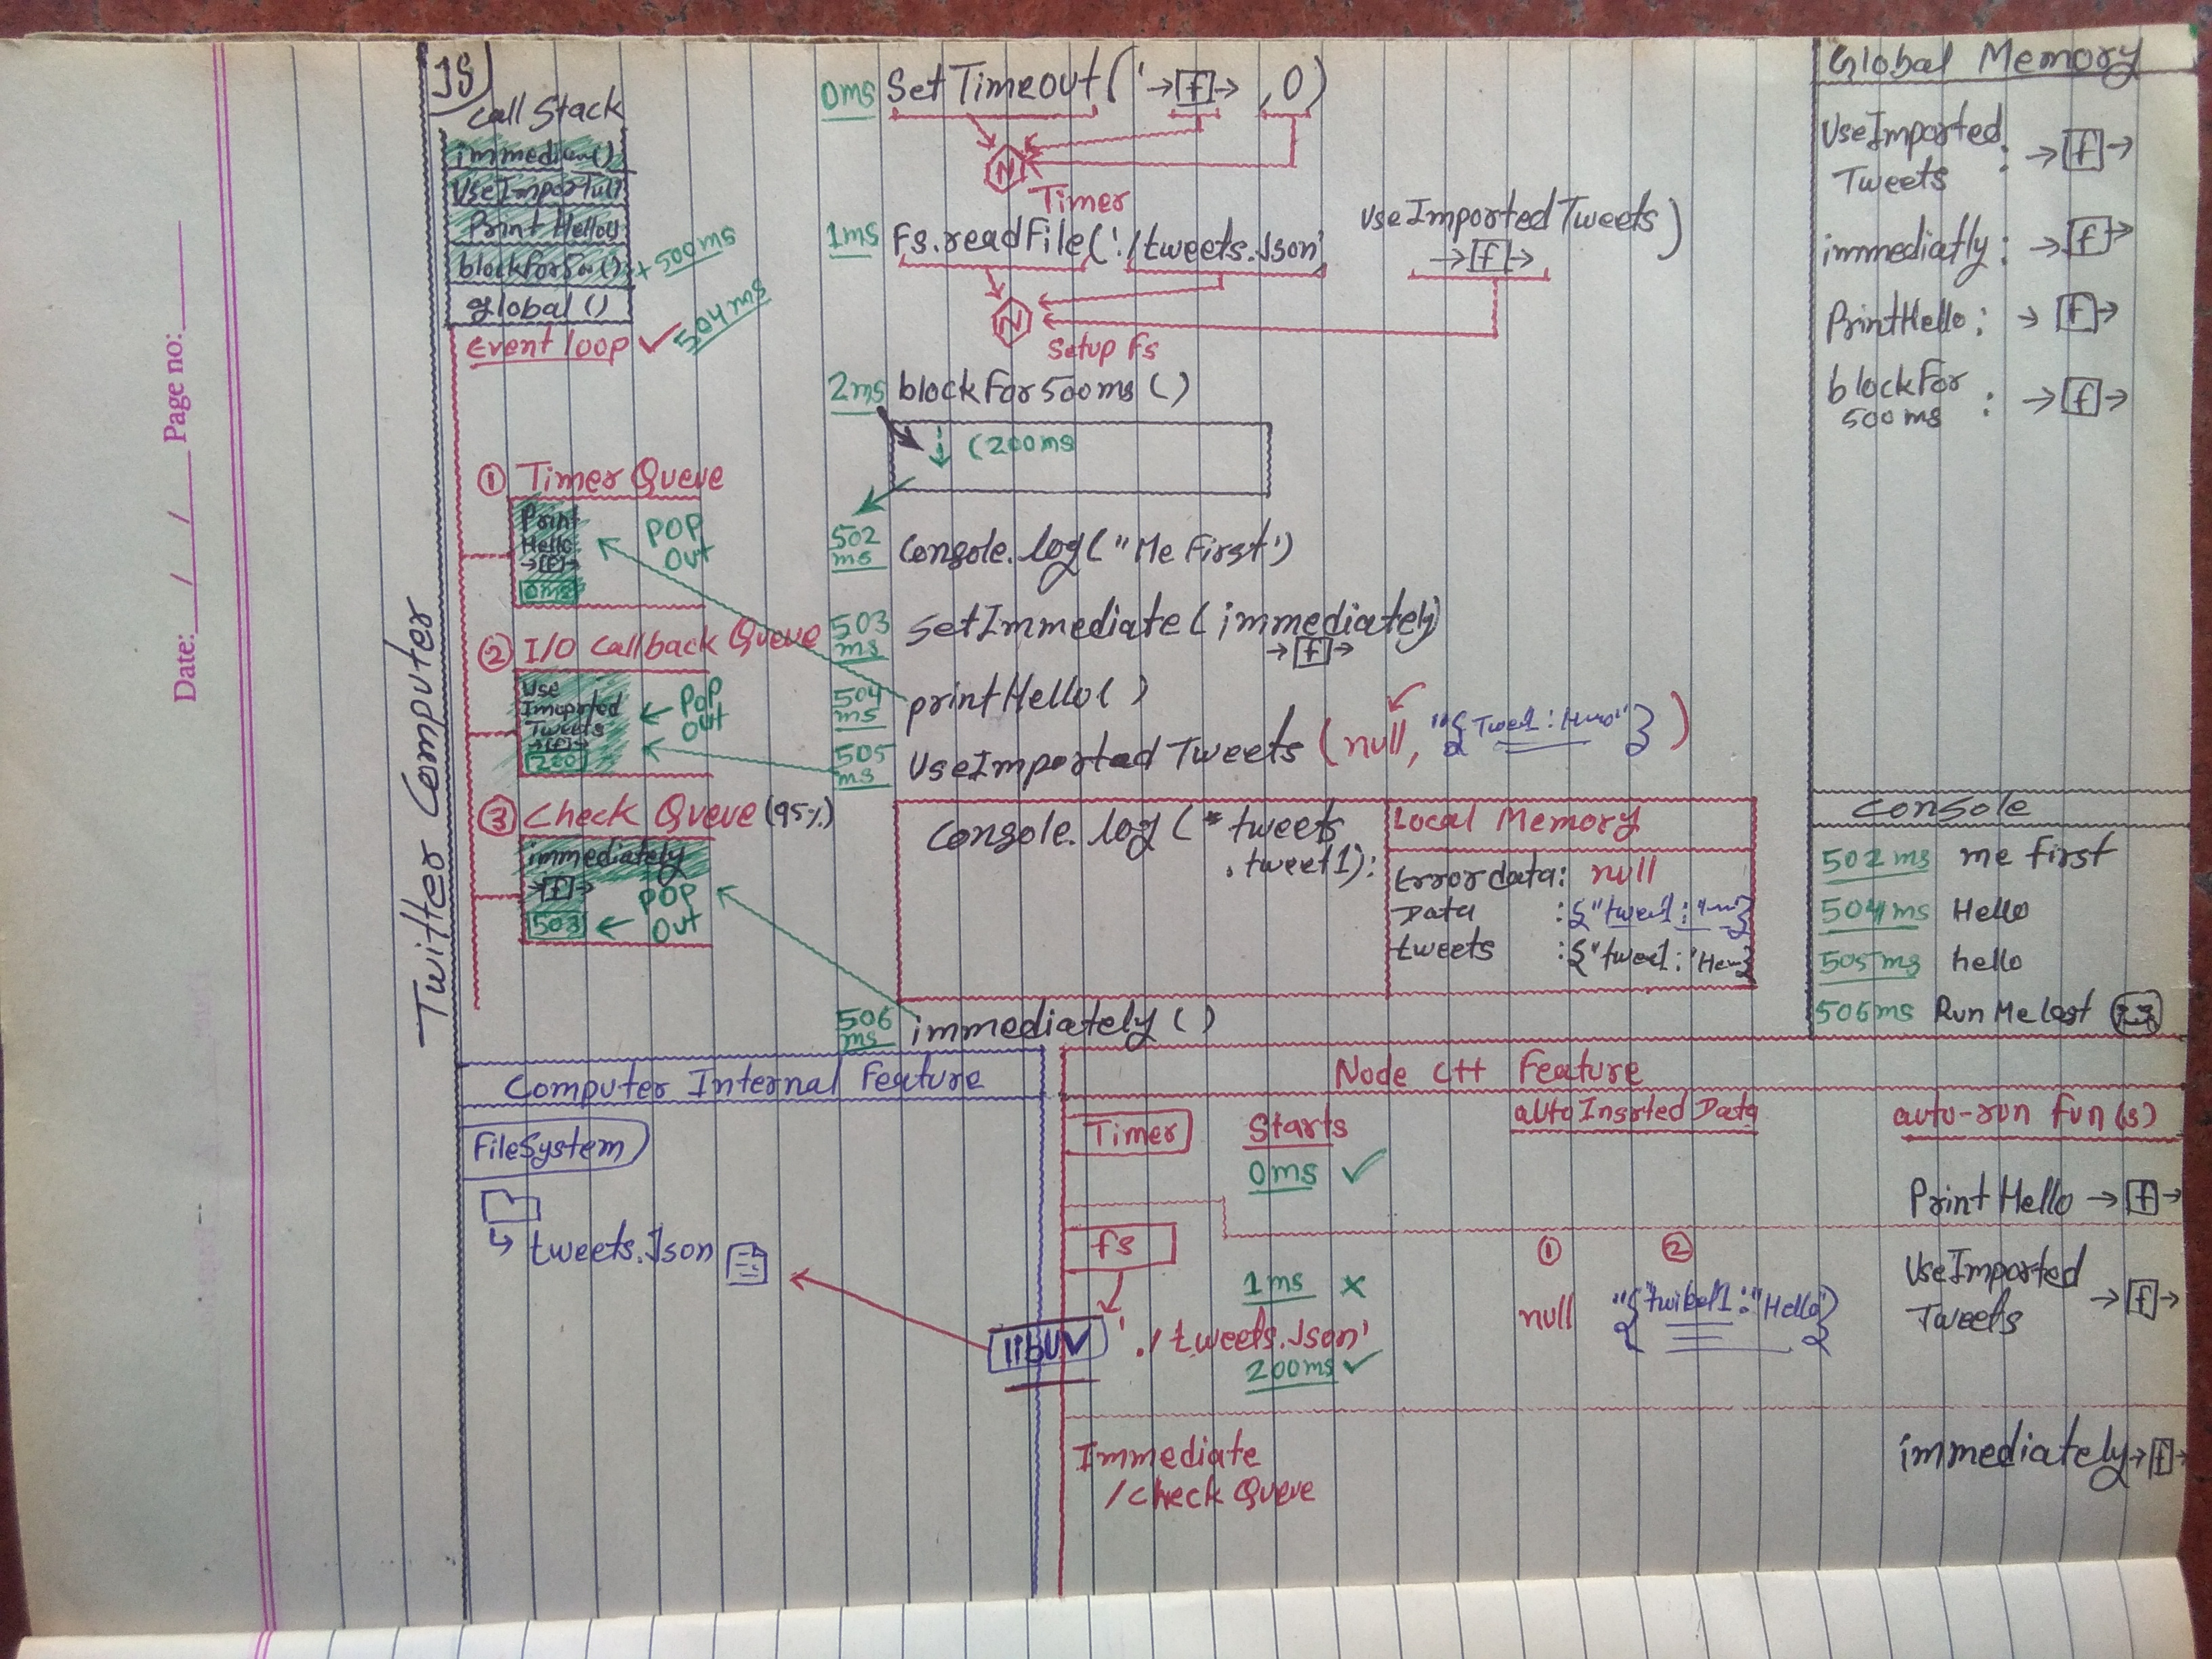 Date: / / Page no:
Twitter Computer
JS
Call Stack
UseImportull
Print Hello
blockFor5oo() + 500ms
global ()
Event loop ✓ 504ms
① Timer Queue
Print
Hello
→[f]→
0ms
POP
Out
② I/O Callback Queue
Use
Imported
Tweets
→[f]→
200
POP
Out
③ Check Queue (95%)
immediately
→[f]→
503
POP
Out
0ms SetTimeout(' →[f]→ , 0)
N
Timer
1ms Fs.readFile('./tweets.Json' UseImportedTweets)
→[f]→
N
Setup Fs
2ms blockFor500ms ()
(200ms
502 ms Console.log("Me First')
503 ms SetImmediate( immediately)
→[f]→
504 ms printHello( )
505 ms UseImported Tweets (null, "{ }")
Console.log(" tweets
.tweet1):
Local Memory
Errordata: null
Data
tweets
506 ms immediately ()
Global Memory
UseImported
Tweets : →[f]→
immediatly : →[f]→
PrintHello : →[f]→
blockFor
500ms : →[f]→
Console
502ms me first
504ms Hello
505ms hello
506ms Run Me last
Computer Internal Feature
FileSystem
↳ tweets.Json
libUV
Node C++ Feature
Timer Starts auto Insrted Data auto-run fun(s)
0ms ✓
Print Hello →[f]→
fs
① ②
1ms ×
'./tweets.Json'
200ms ✓
null "{"twibel1:"Hello"}
UseImported
Tweets →[f]→
Immediate
/check Queue
immediately→[f]→